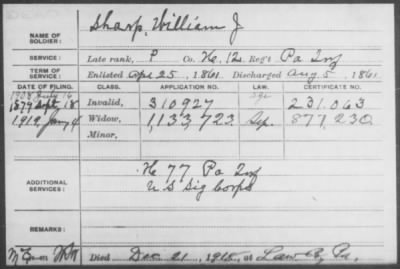 NAME OF SOLDIER: Sharp, William J
SERVICE: Late rank, P Co. K, 12 Reg't Pa Inf
TERM OF SERVICE: Enlisted Apr 25, 1861 Discharged Aug 5, 1861
DATE OF FILING. CLASS. APPLICATION NO. LAW. CERTIFICATE NO.
1908 July 16
1879 Sept 18 Invalid, 310927 231.063
1919 Jany 4 Widow, 1,133,723 Sep. 877,230
Minor,
ADDITIONAL SERVICES: K 77 Pa Inf
U S Sig Corps
REMARKS:
Died Dec 21, 1918, at Pa.